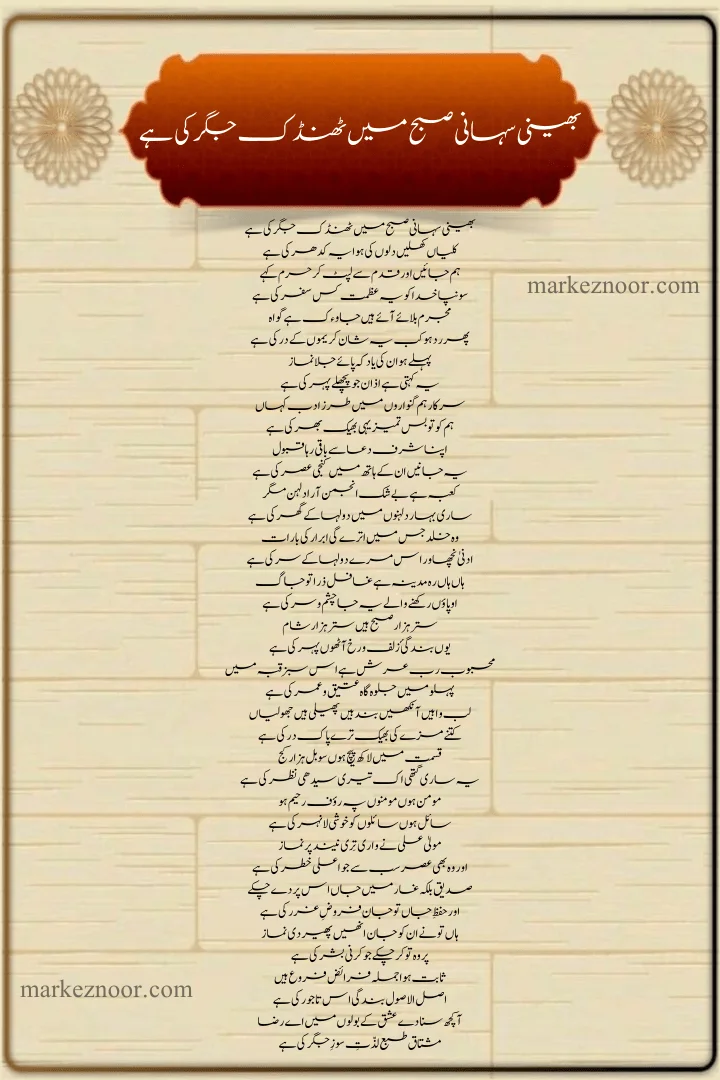 بھینی سہانی صبح میں ٹھنڈک جگر کی ہے
بھینی سہانی صبح میں ٹھنڈک جگر کی ہے
کلیاں کھلیں دلوں کی ہوا یہ کدھر کی ہے
ہم جائیں اور قدم سے لپٹ کر حرم کہے
markeznoor.com
سونپا خدا کو یہ عظمت کس سفر کی ہے
مجرم بلائے آئے ہیں جاوءک ہے گواہ
پھر رد ہو کب یہ شان کریموں کے در کی ہے
پہلے ہو ان کی یاد کہ پائے جلا نماز
یہ کہتی ہے اذان جو پچھلے پہر کی ہے
سرکار ہم گنواروں میں طرز ادب کہاں
ہم کو تو بس تمیز یہی بھیک بھر کی ہے
اپنا شرف دعا سے باقی رہا قبول
یہ جانیں ان کے ہاتھ میں کنجی عصر کی ہے
کعبہ ہے بے شک انجمن آرا دلہن مگر
ساری بہار دلہنوں میں دولہا کے گھر کی ہے
وہ خلد جس میں اترے گی ابرار کی بارات
ادنیٰ نچھاور اس مرے دولہا کے سر کی ہے
ہاں ہاں رہ مدینہ ہے غافل ذرا تو جاگ
او پاؤں رکھنے والے یہ جا چشم و سر کی ہے
ستر ہزار صبح ہیں ستر ہزار شام
یوں بندگیٔ زلف و رخ آٹھوں پہر کی ہے
محبوب رب عرش ہے اس سبز قبہ میں
پہلو میں جلوہ گاہ عتیق و عمر کی ہے
لب وا ہیں آنکھیں بند ہیں پھیلی ہیں جھولیاں
کتنے مزے کی بھیک ترے پاک در کی ہے
قسمت میں لاکھ پیچ ہوں سو بل ہزار کج
یہ ساری گتھی اک تیری سیدھی نظر کی ہے
مومن ہوں مومنوں پہ رؤف رحیم ہو
سائل ہوں سائلوں کو خوشی لا نہر کی ہے
مولیٰ علی نے واری تری نیند پر نماز
اور وہ بھی عصر سب سے جو اعلی خطر کی ہے
صدیق بلکہ غار میں جاں اس پر دے چکے
اور حفظِ جاں تو جان فروضِ غرر کی ہے
ہاں تو نے ان کو جان انھیں پھیر دی نماز
پر وہ تو کر چکے جو کرنی بشر کی ہے
ثابت ہوا جملہ فرائض فروع ہیں
markeznoor.com
اصل الاصول بندگی اس تاجور کی ہے
آ کچھ سنا دے عشق کے بولوں میں اے رضا
مشتاق طبع لذّتِ سوزِ جگر کی ہے